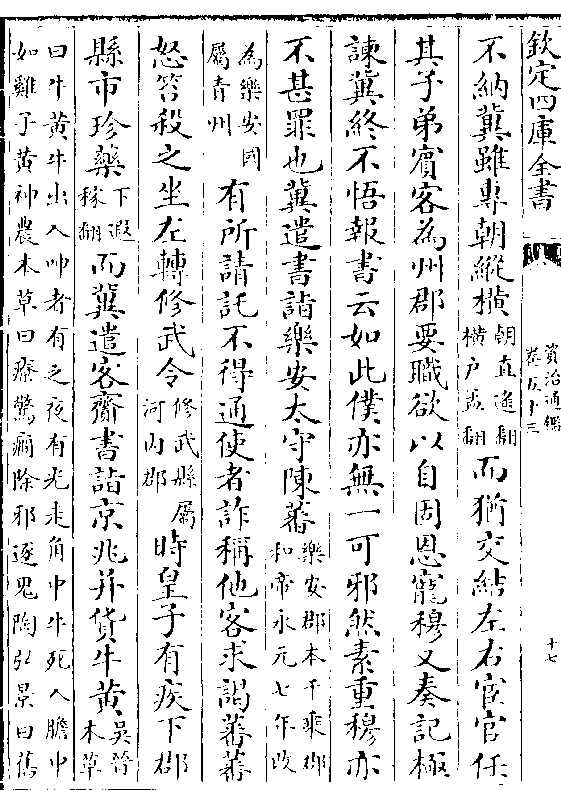 欽定四庫全書
資治通鑑
卷五十三
十七
不納冀雖專朝縱橫朝直遙翻橫户孟翻而猶交結左右宦官任
其子弟賓客為州郡要職欲以自固恩寵穆又奏記極
諫冀終不悟報書云如此僕亦無一可邪然素重穆亦
不甚罪也冀遣書詣樂安太守陳蕃樂安郡本千乘郡和帝永元七年改
為樂安國屬青州有所請託不得通使者詐稱他客求謁蕃蕃
怒笞殺之坐左轉修武令修武縣屬河内郡時皇子有疾下郡
縣市珍藥下遐稼翻而冀遣客齎書詣京兆并貨牛黄吳普本草
曰牛黄牛出入呻者有之夜有光走角中牛死入膽中
如雞子黄神農本草曰療驚癇除邪逐鬼陶弘景曰舊